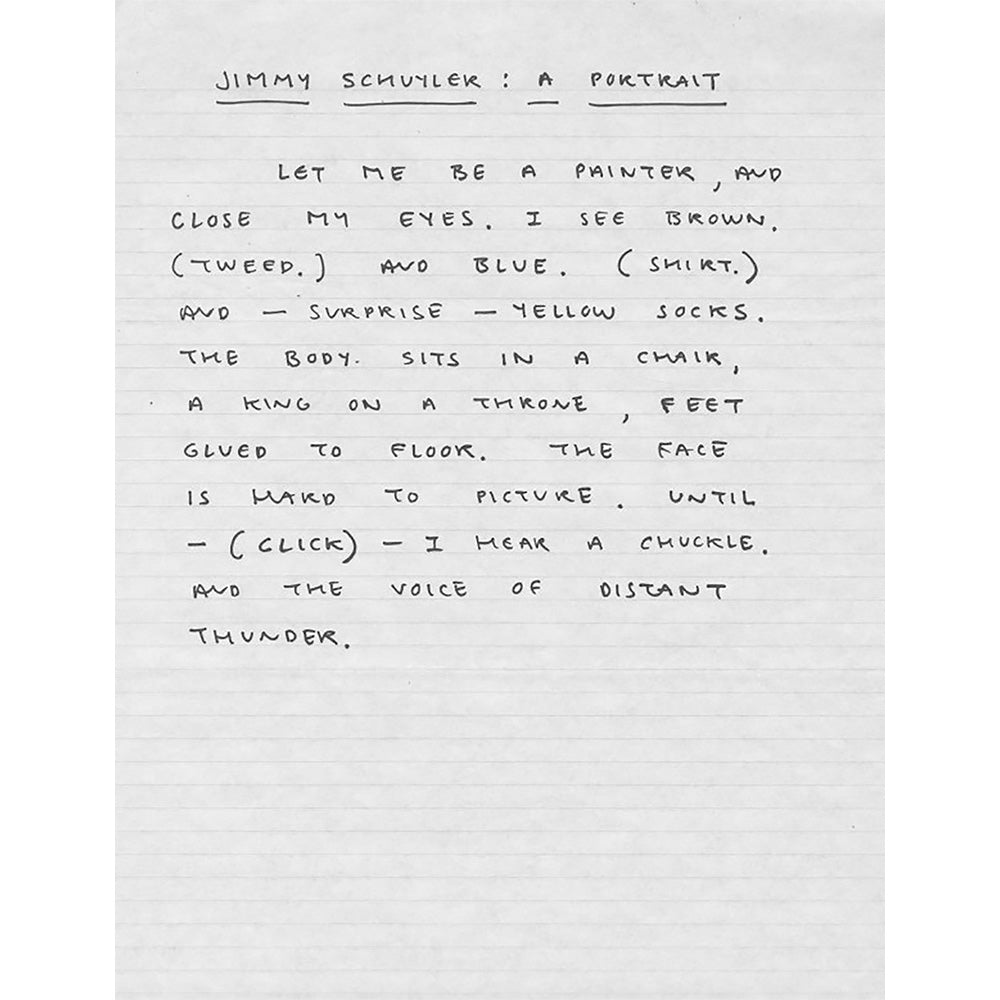 JIMMY SCHUYLER : A PORTRAIT
LET ME BE A PAINTER, AND
CLOSE MY EYES. I SEE BROWN.
(TWEED.) AND BLUE. (SHIRT.)
AND — SURPRISE — YELLOW SOCKS.
THE BODY. SITS IN A CHAIR,
A KING ON A THRONE, FEET
GLUED TO FLOOR. THE FACE
IS HARD TO PICTURE. UNTIL
— (CLICK) — I HEAR A CHUCKLE.
AND THE VOICE OF DISTANT
THUNDER.